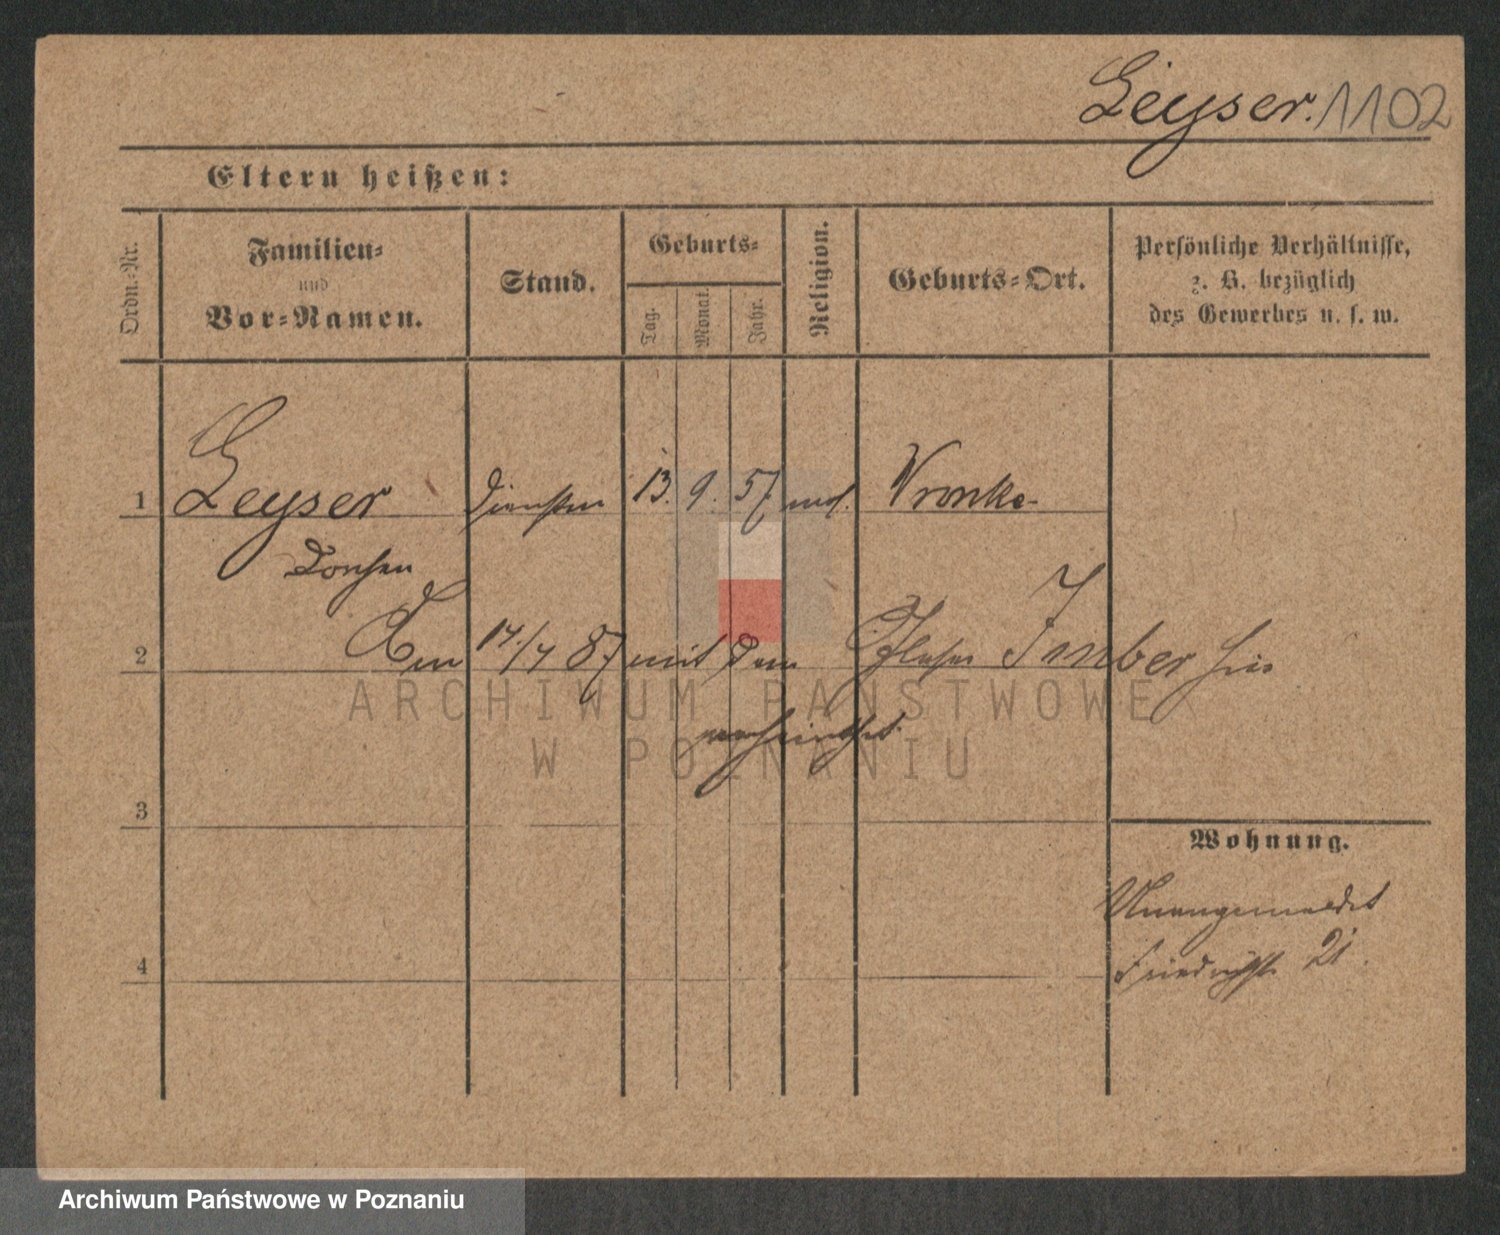 Leyser. 1102
Eltern heißen:
Ordn.-Nr.
Familien-
und
Vor-Namen.
Stand.
Geburts-
Tag.
Monat.
Jahr.
Religion.
Geburts-Ort.
Persönliche Verhältnisse,
z. B. bezüglich
des Gewerbes u. s. w.
1 Leyser 13. 9. 57 mos. Wronke
Dorchen
2 Am 14/4 87 mit dem Imber hier
verheirathet.
3
Wohnung.
Unangemeldet
4
Friedrichstr. 21.
ARCHIWUM PAŃSTWOWE
W POZNANIU
Archiwum Państwowe w Poznaniu